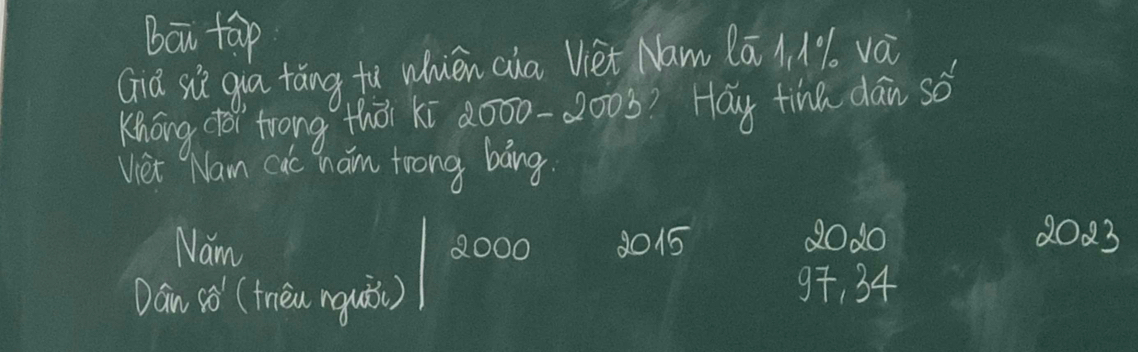 Bài tập:
Giả sử gia tăng tự nhiên của Việt Nam là 1,1% và
Không đổi trong thời kì 2000-2003? Hãy tính dân số
Việt Nam các năm trong bảng:
Năm 2000 2015 2020 2023
Dân số (triệu người) 97,34